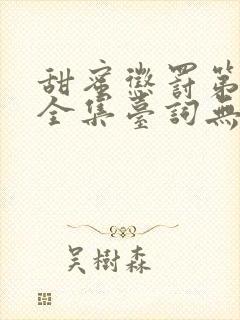 甜蜜懲罰第
全集臺詞無
吳樹森